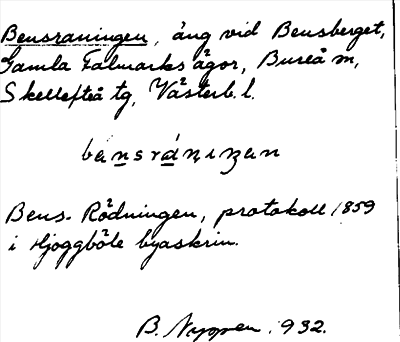 Bensraningen, äng vid Bensberget,
Gamla Falmarks ägor, Bureå m,
Skellefteå tg, Västerb. l.
bensrániŋen
Bens-Rödningen, protokoll 1859
i Hjoggböle byaskrin.
B. 1932.